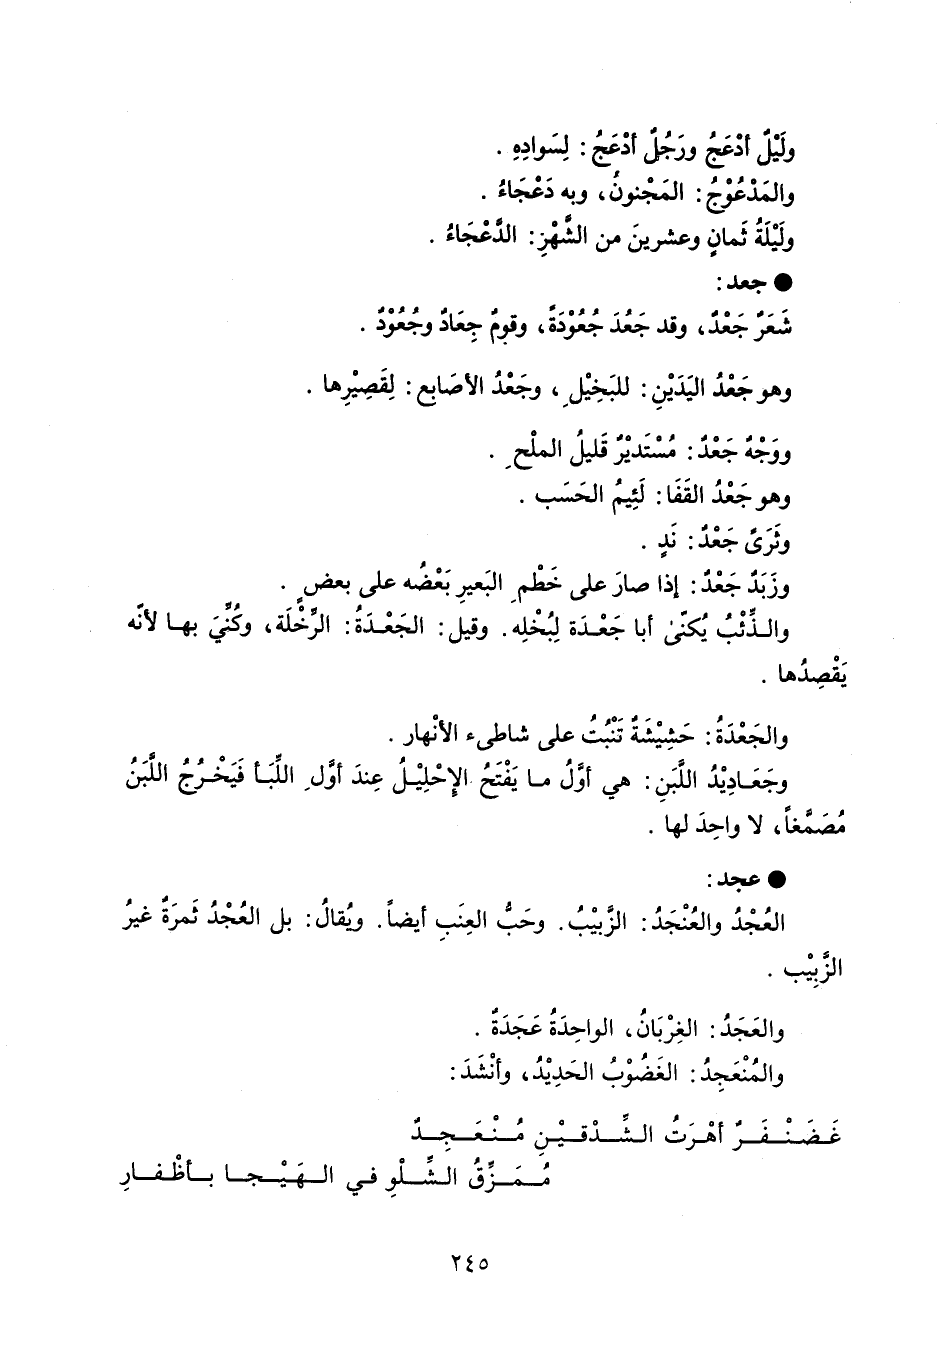 ولَيْلٌ أدْعَجُ ورَجُلٌ أدْعَجُ: لِسَوادِهِ.
والمَدْعُوْجُ: المَجْنونُ، وبه دَعْجَاءُ.
ولَيْلَةُ ثَمانٍ وعشرينَ من الشَّهْرِ: الدَّعْجَاءُ.
● جعد:
شَعَرٌ جَعْدٌ، وقد جَعُدَ جُعُوْدَةً، وقومٌ جِعَادٌ وجُعُوْدٌ.
وهو جَعْدُ اليَدَيْنِ: للبَخِيْلِ، وجَعْدُ الأصَابع: لِقَصِيْرِها.
ووَجْهٌ جَعْدٌ: مُسْتَدِيْرٌ قَليلُ الملْحِ.
وهو جَعْدُ القَفَا: لَئِيمُ الحَسَب.
وثَرَىً جَعْدٌ: نَدٍ.
وزَبَدٌ جَعْدٌ: إذا صارَ على خَطْمِ البَعيرِ بَعْضُه على بعضٍ.
والذِّئْبُ يُكنّىٰ أبا جَعْدَة لِبُخْلِه. وقيل: الجَعْدَةُ: الرِّخْلَة، وكُنِّيَ بها لأنّه
يَقْصِدُها.
والجَعْدَةُ: حَشِيْشَةٌ تَنْبُتُ على شاطىء الأنْهار.
وجَعَادِيْدُ اللَّبَنِ: هي أوَّلُ ما يَفْتَحُ الإحْلِيْلُ عِندَ أوَّلِ اللِّبَأ فَيَخْرُجُ اللَّبَنُ
مُصَمَّغاً، لا واحِدَ لها.
● عجد:
العُجْدُ والعُنْجَدُ: الزَّبِيْبُ. وحَبُّ العِنَبِ أيضاً. ويُقالُ: بل العُجْدُ ثَمرَةٌ غيرُ
الزَّبِيْب.
والعَجَدُ: الغِرْبَانُ، الواحِدَةُ عَجَدَةٌ.
والمُنْعَجِدُ: الغَضُوْبُ الحَدِيْدُ، وأنْشَدَ:
غَضَنْفَرٌ أهْرَتُ الشِّدْقَيْنِ مُنْعَجِدٌ
مُمَزِّقُ الشِّلْوِ في الهَيْجا بأظْفارِ
٢٤٥